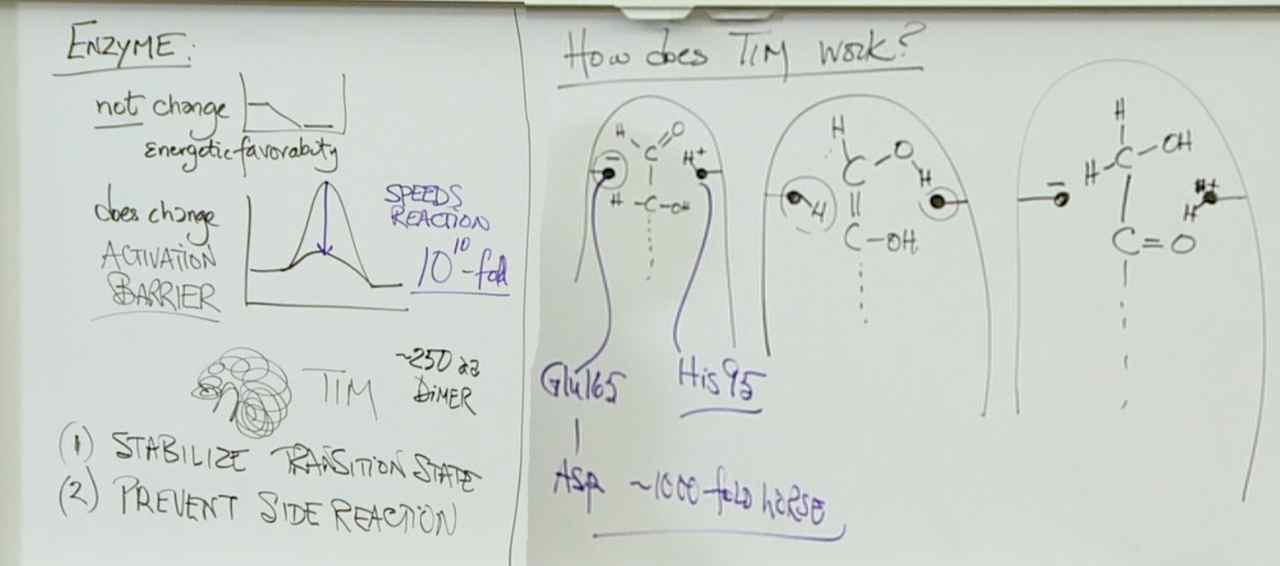 ENZYME:
not change
Energetic favorabity
does change
ACTIVATION
BARRIER
SPEEDS
REACTION
10^10-fold
TIM
~250 aa
DIMER
(1) STABILIZE TRANSITION STATE
(2) PREVENT SIDE REACTION
How does TIM work?
H O
C
− H+
H-C-OH
Glu165
His95
Asp ~1000-fold worse
H
C O
H
H
C-OH
H
C-OH
H
− H+
H
C=O